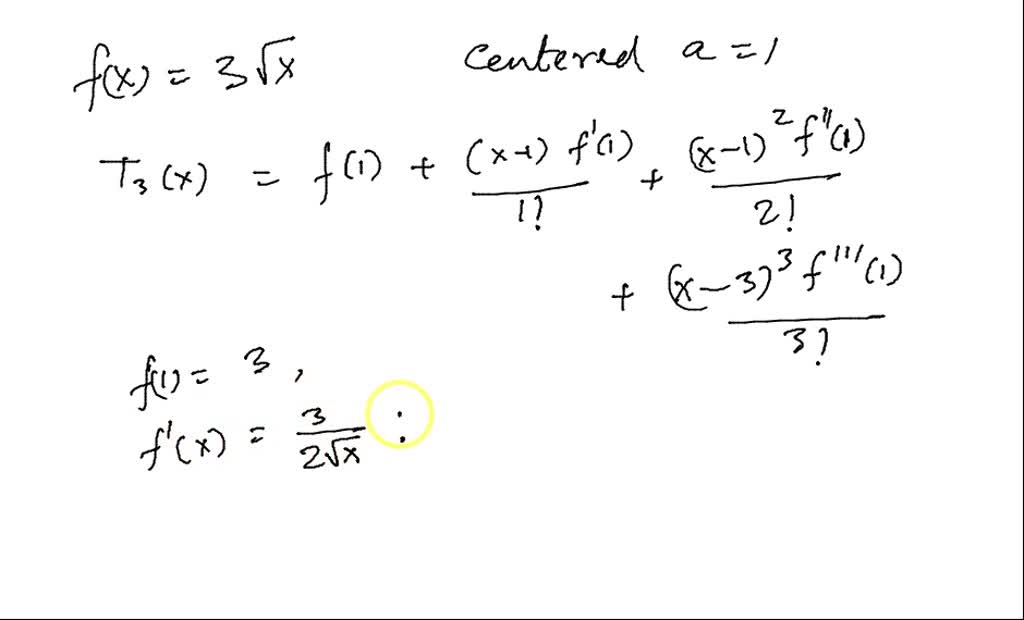 f(x) = 3√x centered a = 1
T₃(x) = f(1) + (x-1) f'(1) / 1! + (x-1)² f''(1) / 2!
+ (x-3)³ f'''(1) / 3!
f(1) = 3 ,
f'(x) = 3 / 2√x :